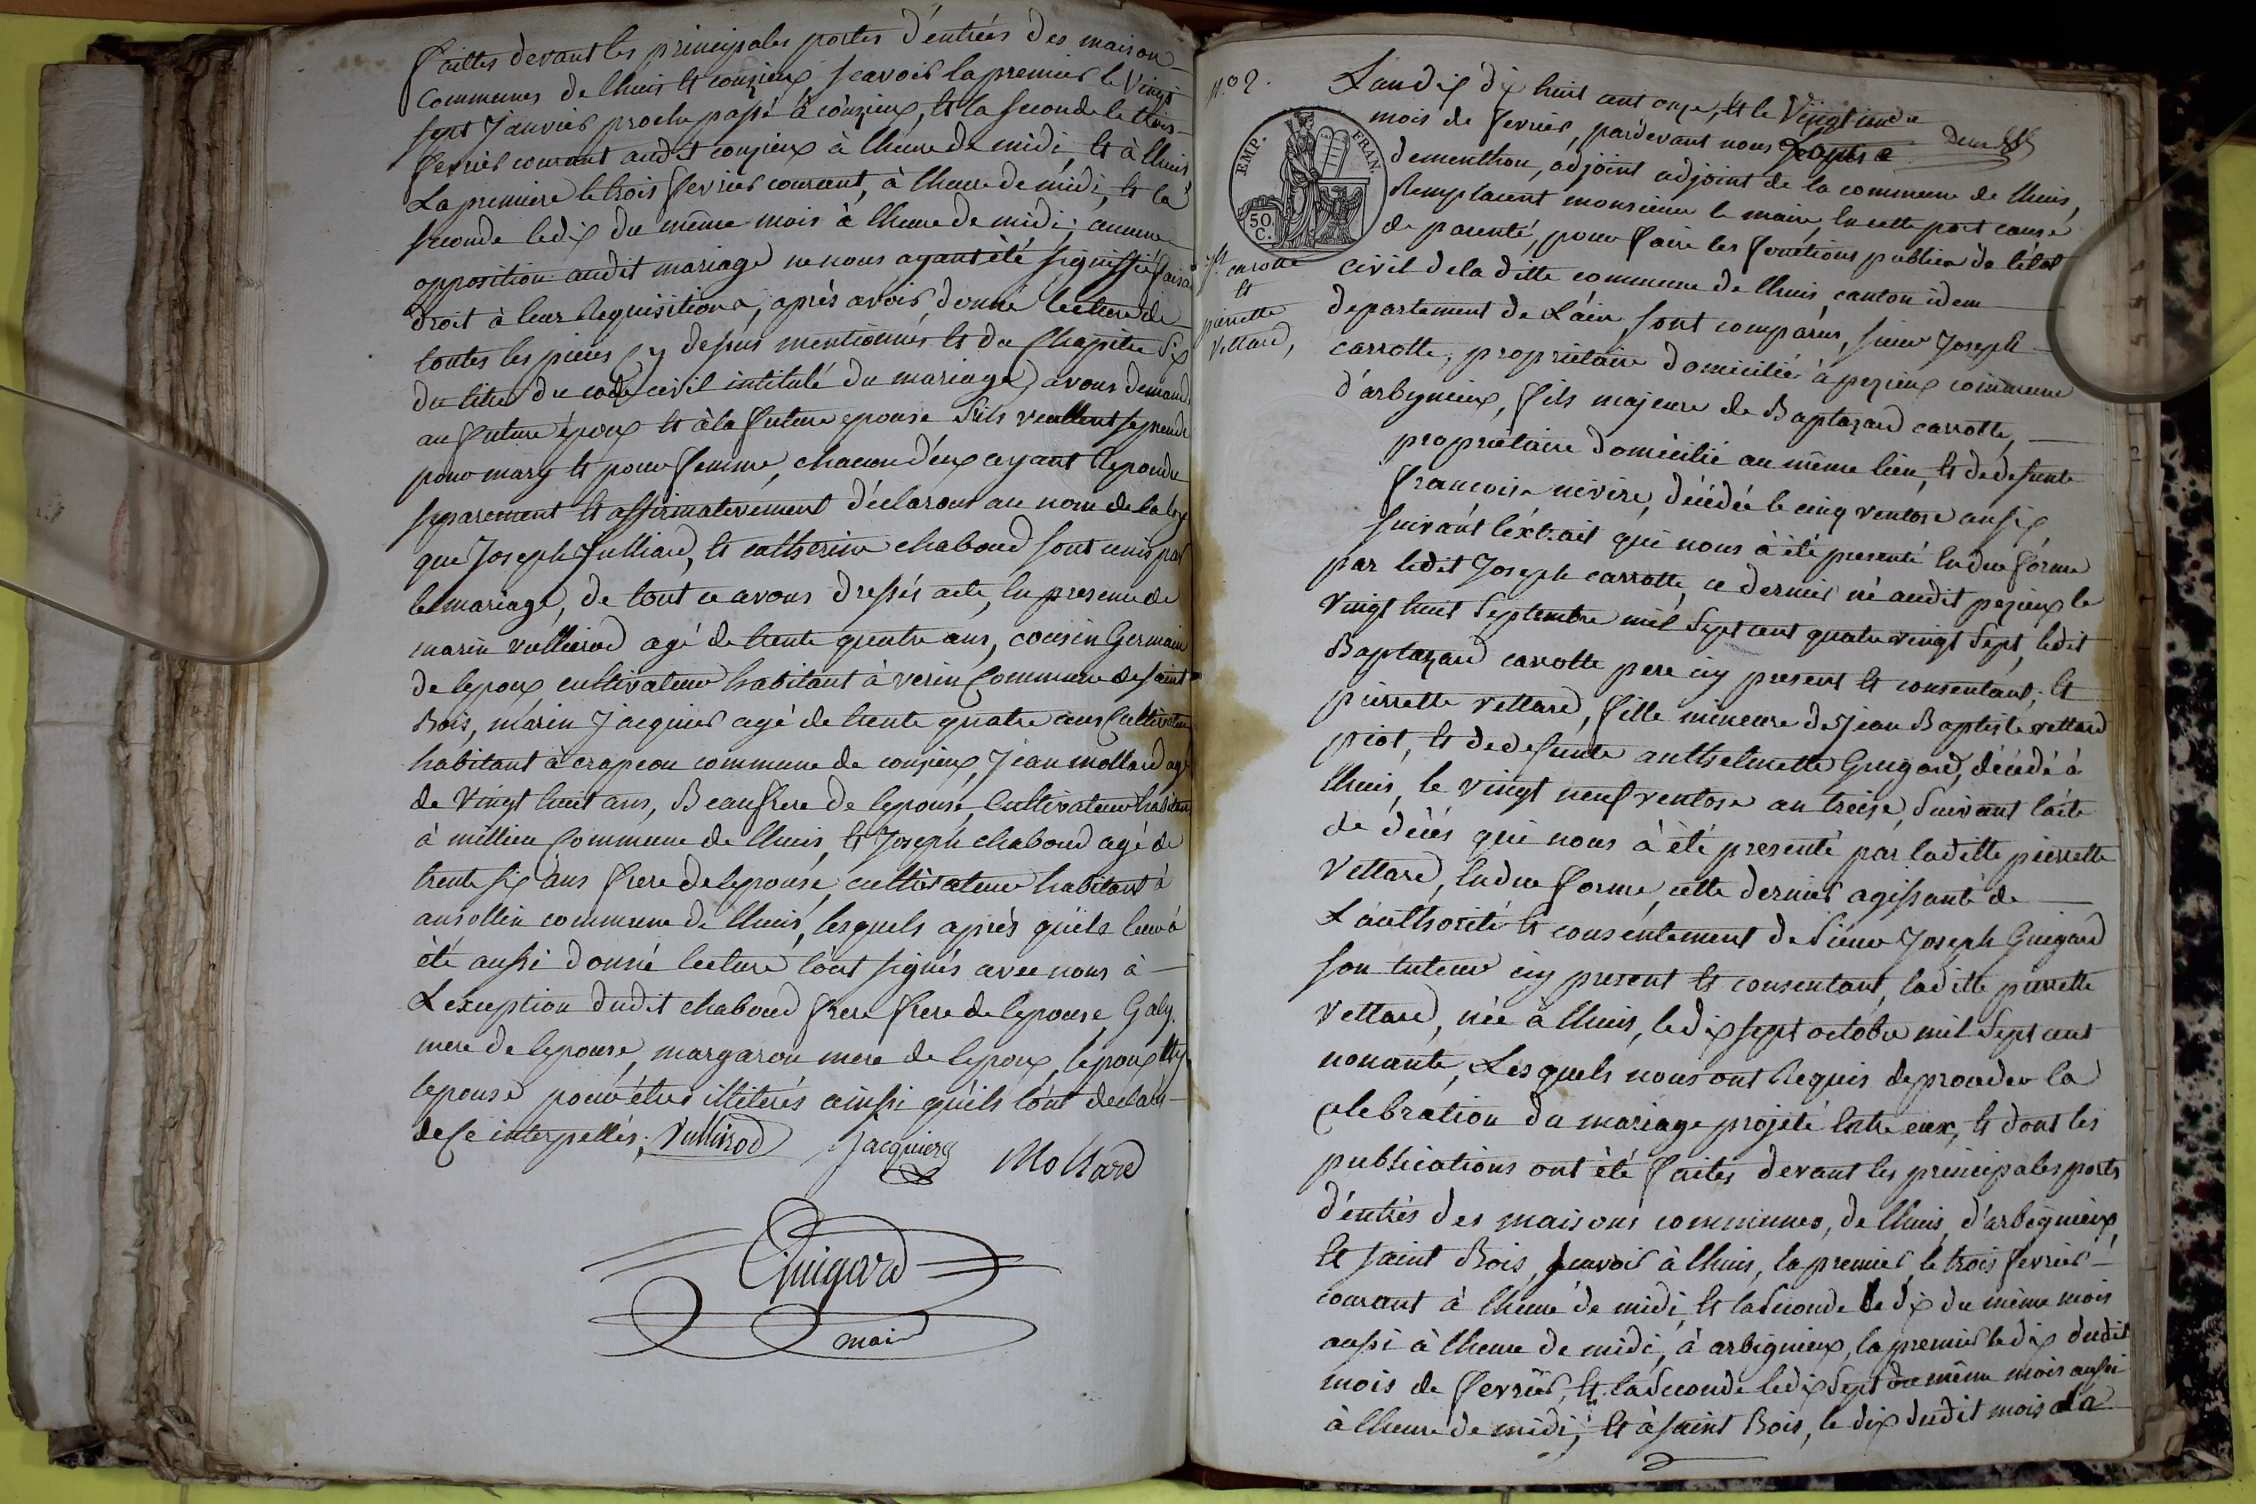 faittes devant les principales portes d'entrées des maison
Communes de lhuis et conzieux scavoir la premier le Vingt
sept Janvier proche passé à conzieux, et la seconde le trois
fevrier courant audit conzieux à lheure de midi, et à lhuis
La premiere le trois fevrier courant, à lheure de midi, et la
seconde le dix du même mois à lheure de midi; aucune
opposition audit mariage ne nous ayant été signiffié faisant
droit à leur Requisition, après avoir donné lecture de
toutes les pieces cy dessus mentionnés et du Chapitre six
du titre du code civil intitulé du mariage) avons demandé
au future époux et à la future epouse s'ils veullent se prendre
pour mary et pour femme, chacun d'eux ayant Repondu
separement et affirmativement déclarons au nom de la loy
que Joseph Julliard, et catherine chaboud sont unis par
le mariage, de tout ce avons dressés acte, en presence de
marin vullierod agé de trente quatre ans, cousin Germain
de lepoux cultivateur habitant à verin Commune de saint
Bois, marin Jacquier agé de trente quatre ans Cultivateur
habitant à crapeou commune de conzieux, Jean mollard agé
de Vingt huit ans, Beaufrere de lepouse, Cultivateur habitant
à millieu Commune de lhuis, et Joseph chaboud agé de
trente six ans frere de lepouse, cultivateur habitant à
ansollin commune de lhuis, lesquels après qu'ils leur à
été aussi donné lecture l'ont signés avec nous à
L'exception dudit chaboud frere frere de lepouse, Galy
mere de lepouse, margaron mere de lepoux, lepoux et
lepouse pour étres illiterés ainsi qu'ils l'ont declaré
de ce interpellés. Vullierod Jacquier Mollard
Guigard
maire
n.o 2.
L'an dix dix huit cent onze, et le Vingt un du
mois de fevrier, pardevant nous
dementhon, adjoint adjoint de la commune de lhuis,
Remplacent monsieur le maire, en cette part cause
de parenté, pour faire les fonctions publica de l'état
civil de la ditte commune de lhuis, canton idem
departement de L'ain, sont comparus, sieur Joseph
carrotte, propriétaire domicilié à pezieux commune
d'arbignieux, fils majeure de Baptazard carrotte,
propriétaire domicilié au même lieu, et de defunte
francoise nivire, décédée le cinq ventose an six
suivant l'extrait qui nous à été presenté en due forme
par ledit Joseph carrotte, ce dernier né audit pezieux le
vingt huit septembre mil sept cent quatre vingt sept, ledit
Baptazard carrotte pere icy present et consentant; et
pierrette vettard, fille mineure de Jean Baptiste vettard
piot, et de defunte anthelmette Guigard, décédé à
lhuis, le vingt neuf ventose an treize, suivant l'acte
de décés qui nous à été presenté par laditte pierrette
Vettard, en due forme, cette dernier agissante de
L'authorité et consentement de sieur Joseph Guigard
son tuteur icy present et consentant, laditte pierrette
Vettard, née à lhuis, le dix sept octobre mil sept cent
nonante, Lesquels nous ont Requis de proceder la
celebration du mariage projeté entre eux, et dont les
publications ont été faites devant les principales ports
d'entrés des maisons communes, de lhuis, d'arbignieux,
et saint Bois, scavoir à lhuis, la premier, le trois fevrier
courant à lheure de midi, et la seconde le dix du même mois
aussi à lheure de midi, à arbignieux, la premier le dix dudit
mois de fevrier, et la seconde le dix sept du même mois aussi
à lheure de midi, et à saint Bois, le dix dudit mois a la
EMP. FRAN.
50 C.
Jh carotte
et
pierrette
Vettard,